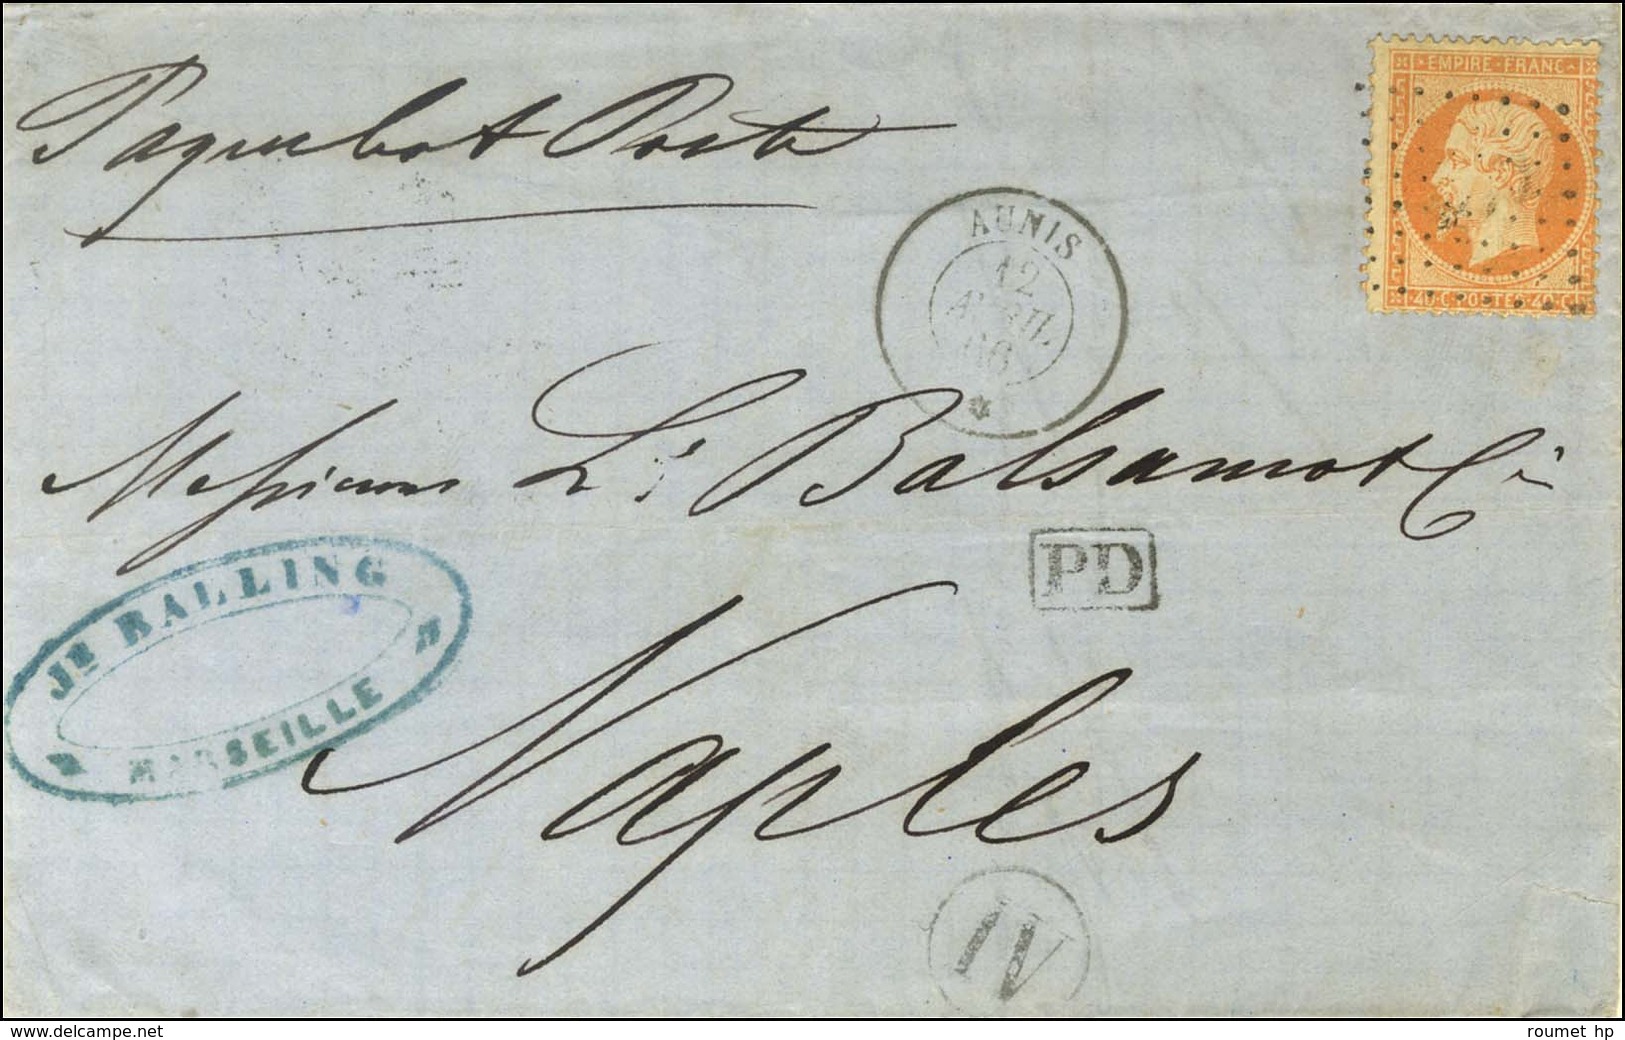 Paquebot Poste
EMPIRE FRANC
40 C POSTES 40 C
AUNIS
12
AVRIL
66
Messieurs L. Balsamo & Cie
PD
JH BALLING
MARSEILLE
Naples
IV
www.delcampe.net
roumet hp